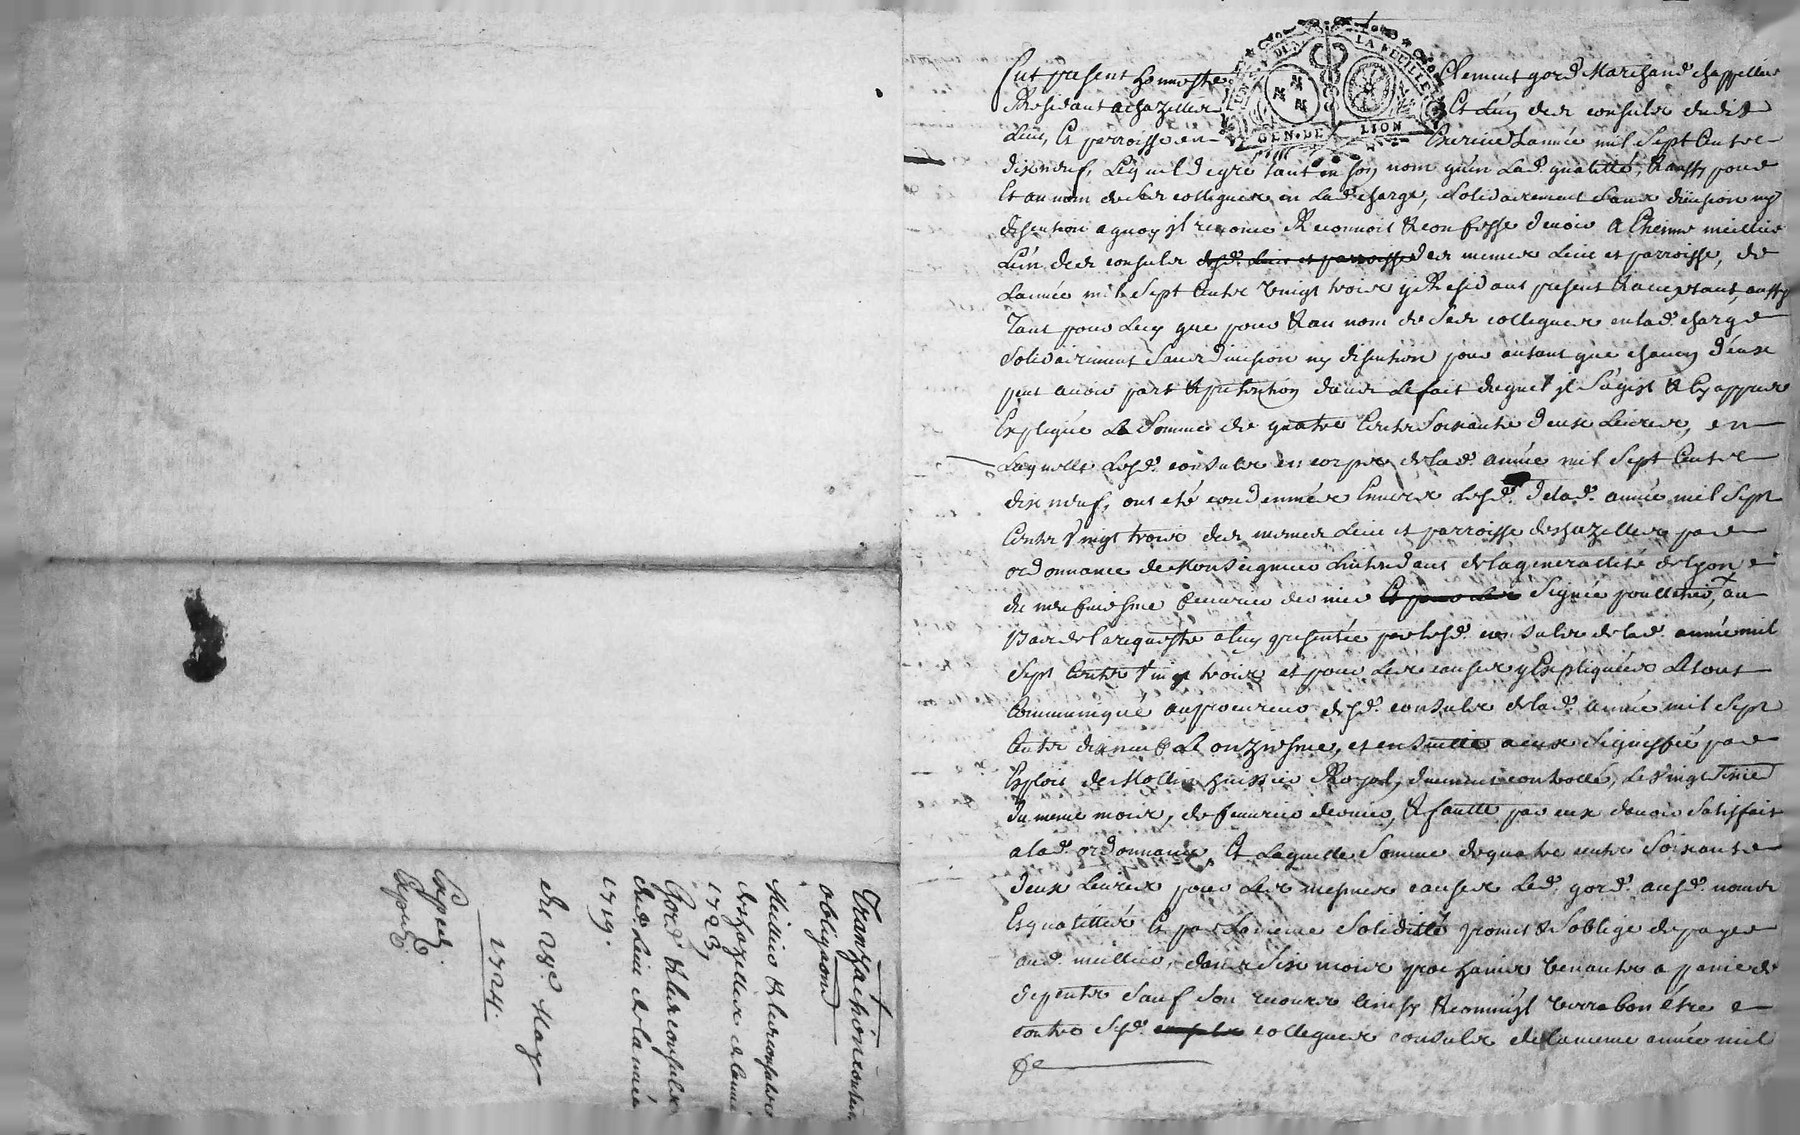 Fut present honneste Clement gord Marchand chappellier
Residant a chazelles Et L'un des consuls dudit
Lieu, Et parroisse en Exercice L'année mil Sept Cents
dix neuf, Lequel de gré tant en son nom qu'en Lad. qualitté, & aussy pour
Et au nom de ses collegues en Lad. charge, solidairement sans division ny
discution a quoy il renonce Reconnoit & confesse devoir A Etienne meillier
L'un des consuls desd. Lieu et parroisse des memes Lieu et parroisse, de
L'année mil Sept Cents vingt trois y Residant present & acceptant, aussy
Tant pour Luy que pour & au nom de ses collegues en lad. charge
Solidairement sans division ny discution pour autant que chacun d'eux
peut avoir part & pretention dans Le fait duquel il s'agist & Cy appres
Expliqué La Somme de quatre Cents Soixante deux Livres, en
Laquelle Lesd. consuls en corps de lad. année mil Sept Cents
dix neuf, ont eté condemnés Envers Lesd. de lad. année mil Sept
Cents Vingt trois des memes Lieu et parroisse de chazelles par
ordonnance de Monseigneur L'intendant de la generallité de Lyon
du neufviesme fevrier dernier Signée poulletier, au
Bas de la requeste a luy presentée par lesd. consuls de lad. année mil
Sept Cents Vingt trois et pour Les causes y Expliquées Le tout
Communiqué au procureur desd. consuls de lad. année mil Sept
Cents dix neuf Le onziesme, et ensuitte a eux signiffié par
Exploit de Mollin huissier Royal, duement controllé, Le Vingt
du meme mois, de fevrier dernier, & faulte par eux d'avoir satisfait
a lad. ordonnance, Et Laquelle Somme de quatre cents Soixante
deux Livres pour Les mesmes causes Led. gord. ausd. noms
Et qualittés Et par La meme Soliditté promet & s'oblige de payer
aud. meillier, dans Six mois prochains venants a peine de
depents Sauf Son recours ainsy & comm'il verra bon être
contre Sesd. collegues consuls de la meme année mil
Tranzaction contenant
obligaõn
Meillier & les consuls
de chazelles de l'année
1723,
Gord & les consuls
dud. Lieu de l'année
1719.
Du May
1724.
Exped.
Exped.
GEN. DE LION
LA FEUILLE